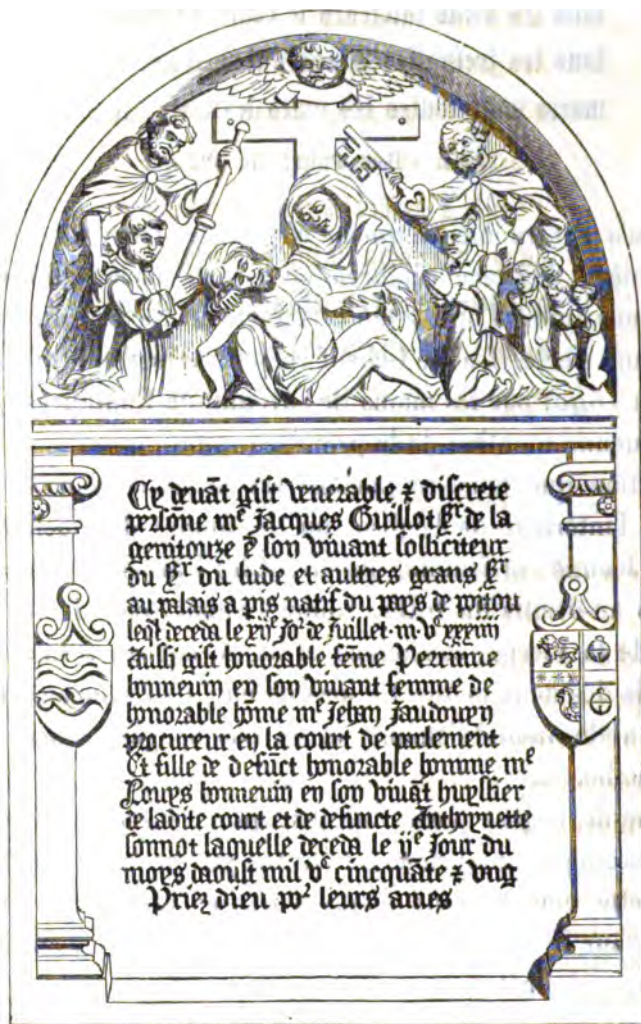 Cy devāt gist venerable ⁊ discrete
persōne mᵉ Jacques Guillot sʳ de la
genitouze ē son vivant solliciteur
du sʳ du lude et aultres grans sʳ
au palais a pis natif du pays de poitou
leqˡ deceda le xijᵉ Joʳ de Juillet · m · vᶜ xxxiiij
Aussi gist honorable fēme Perrinne
bonnevin en son vivant femme de
honorable hōme mᵉ Jehan Jaudouyn
procureur en la court de parlement
Et fille de defūct honorable homme mᵉ
Louys bonnevin en son vivāt huyssier
de ladite court et de defuncte Anthoynette
sonnot laquelle deceda le ijᵉ Jour du
moys daoust mil vᶜ cinquāte ⁊ ung
Priez dieu poʳ leurs ames